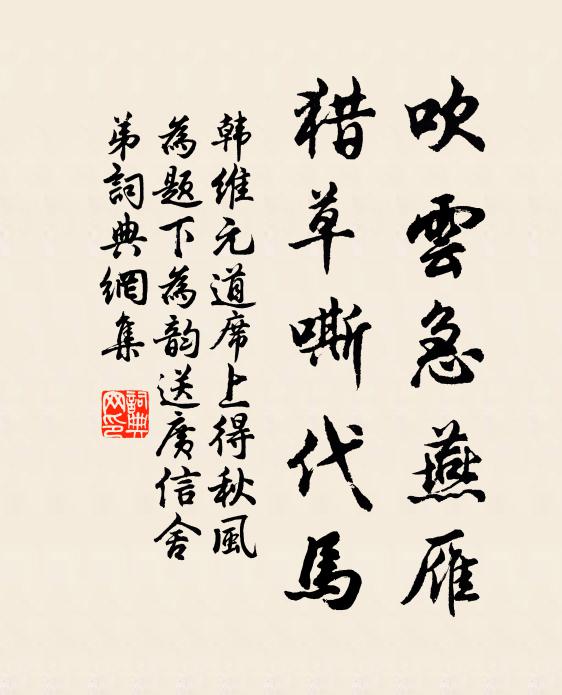 吹雲急燕雁
猎草嘶代馬
韩維元道席上得秋風
為題下為韵送廣信舍
弟詞典網集
詞典
网印